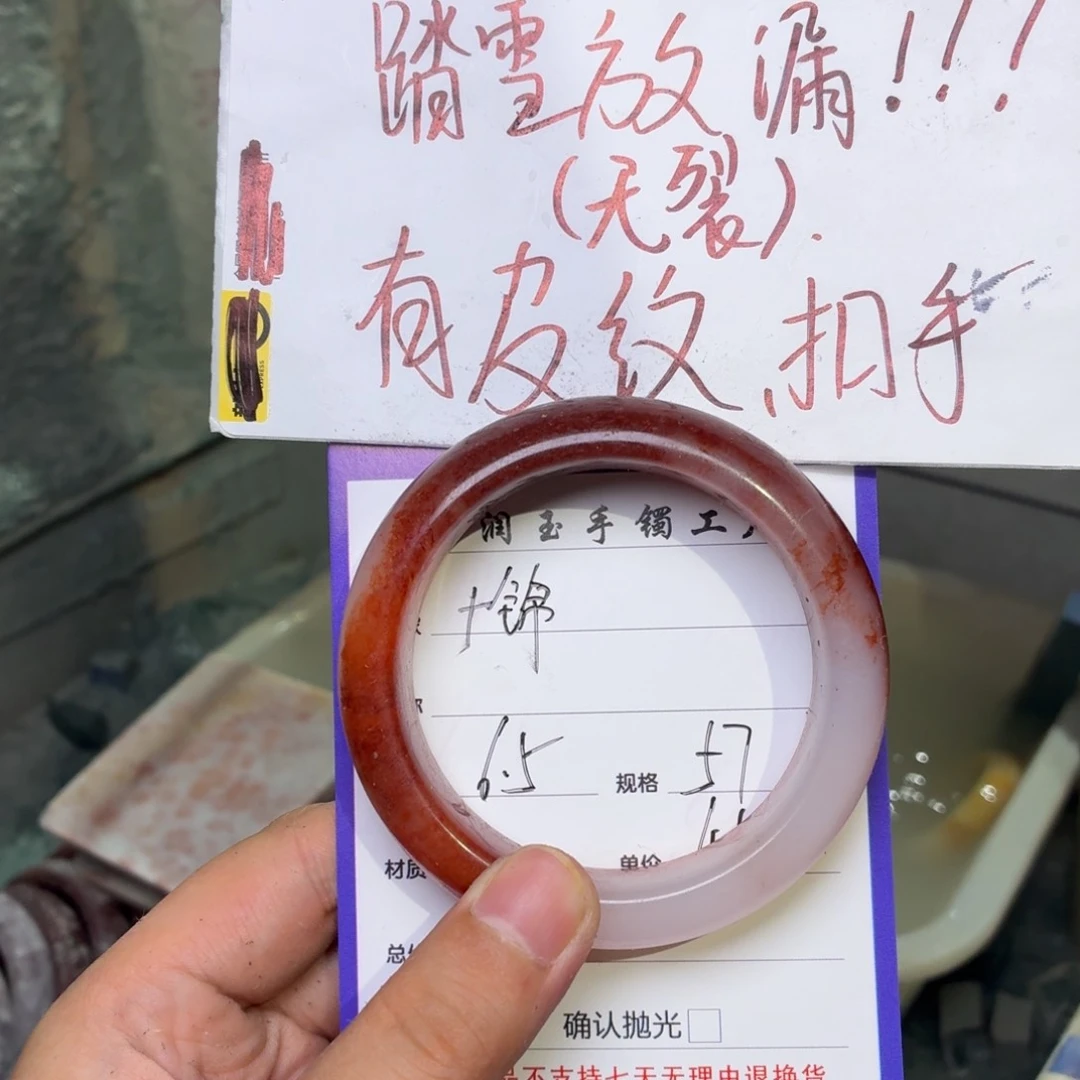 踏雪放漏!!!
(无裂).
有皮纹、扣手
润玉手镯工
十锦
6.5 规格 57
单价
材质
确认抛光
不支持七天无理由退换货